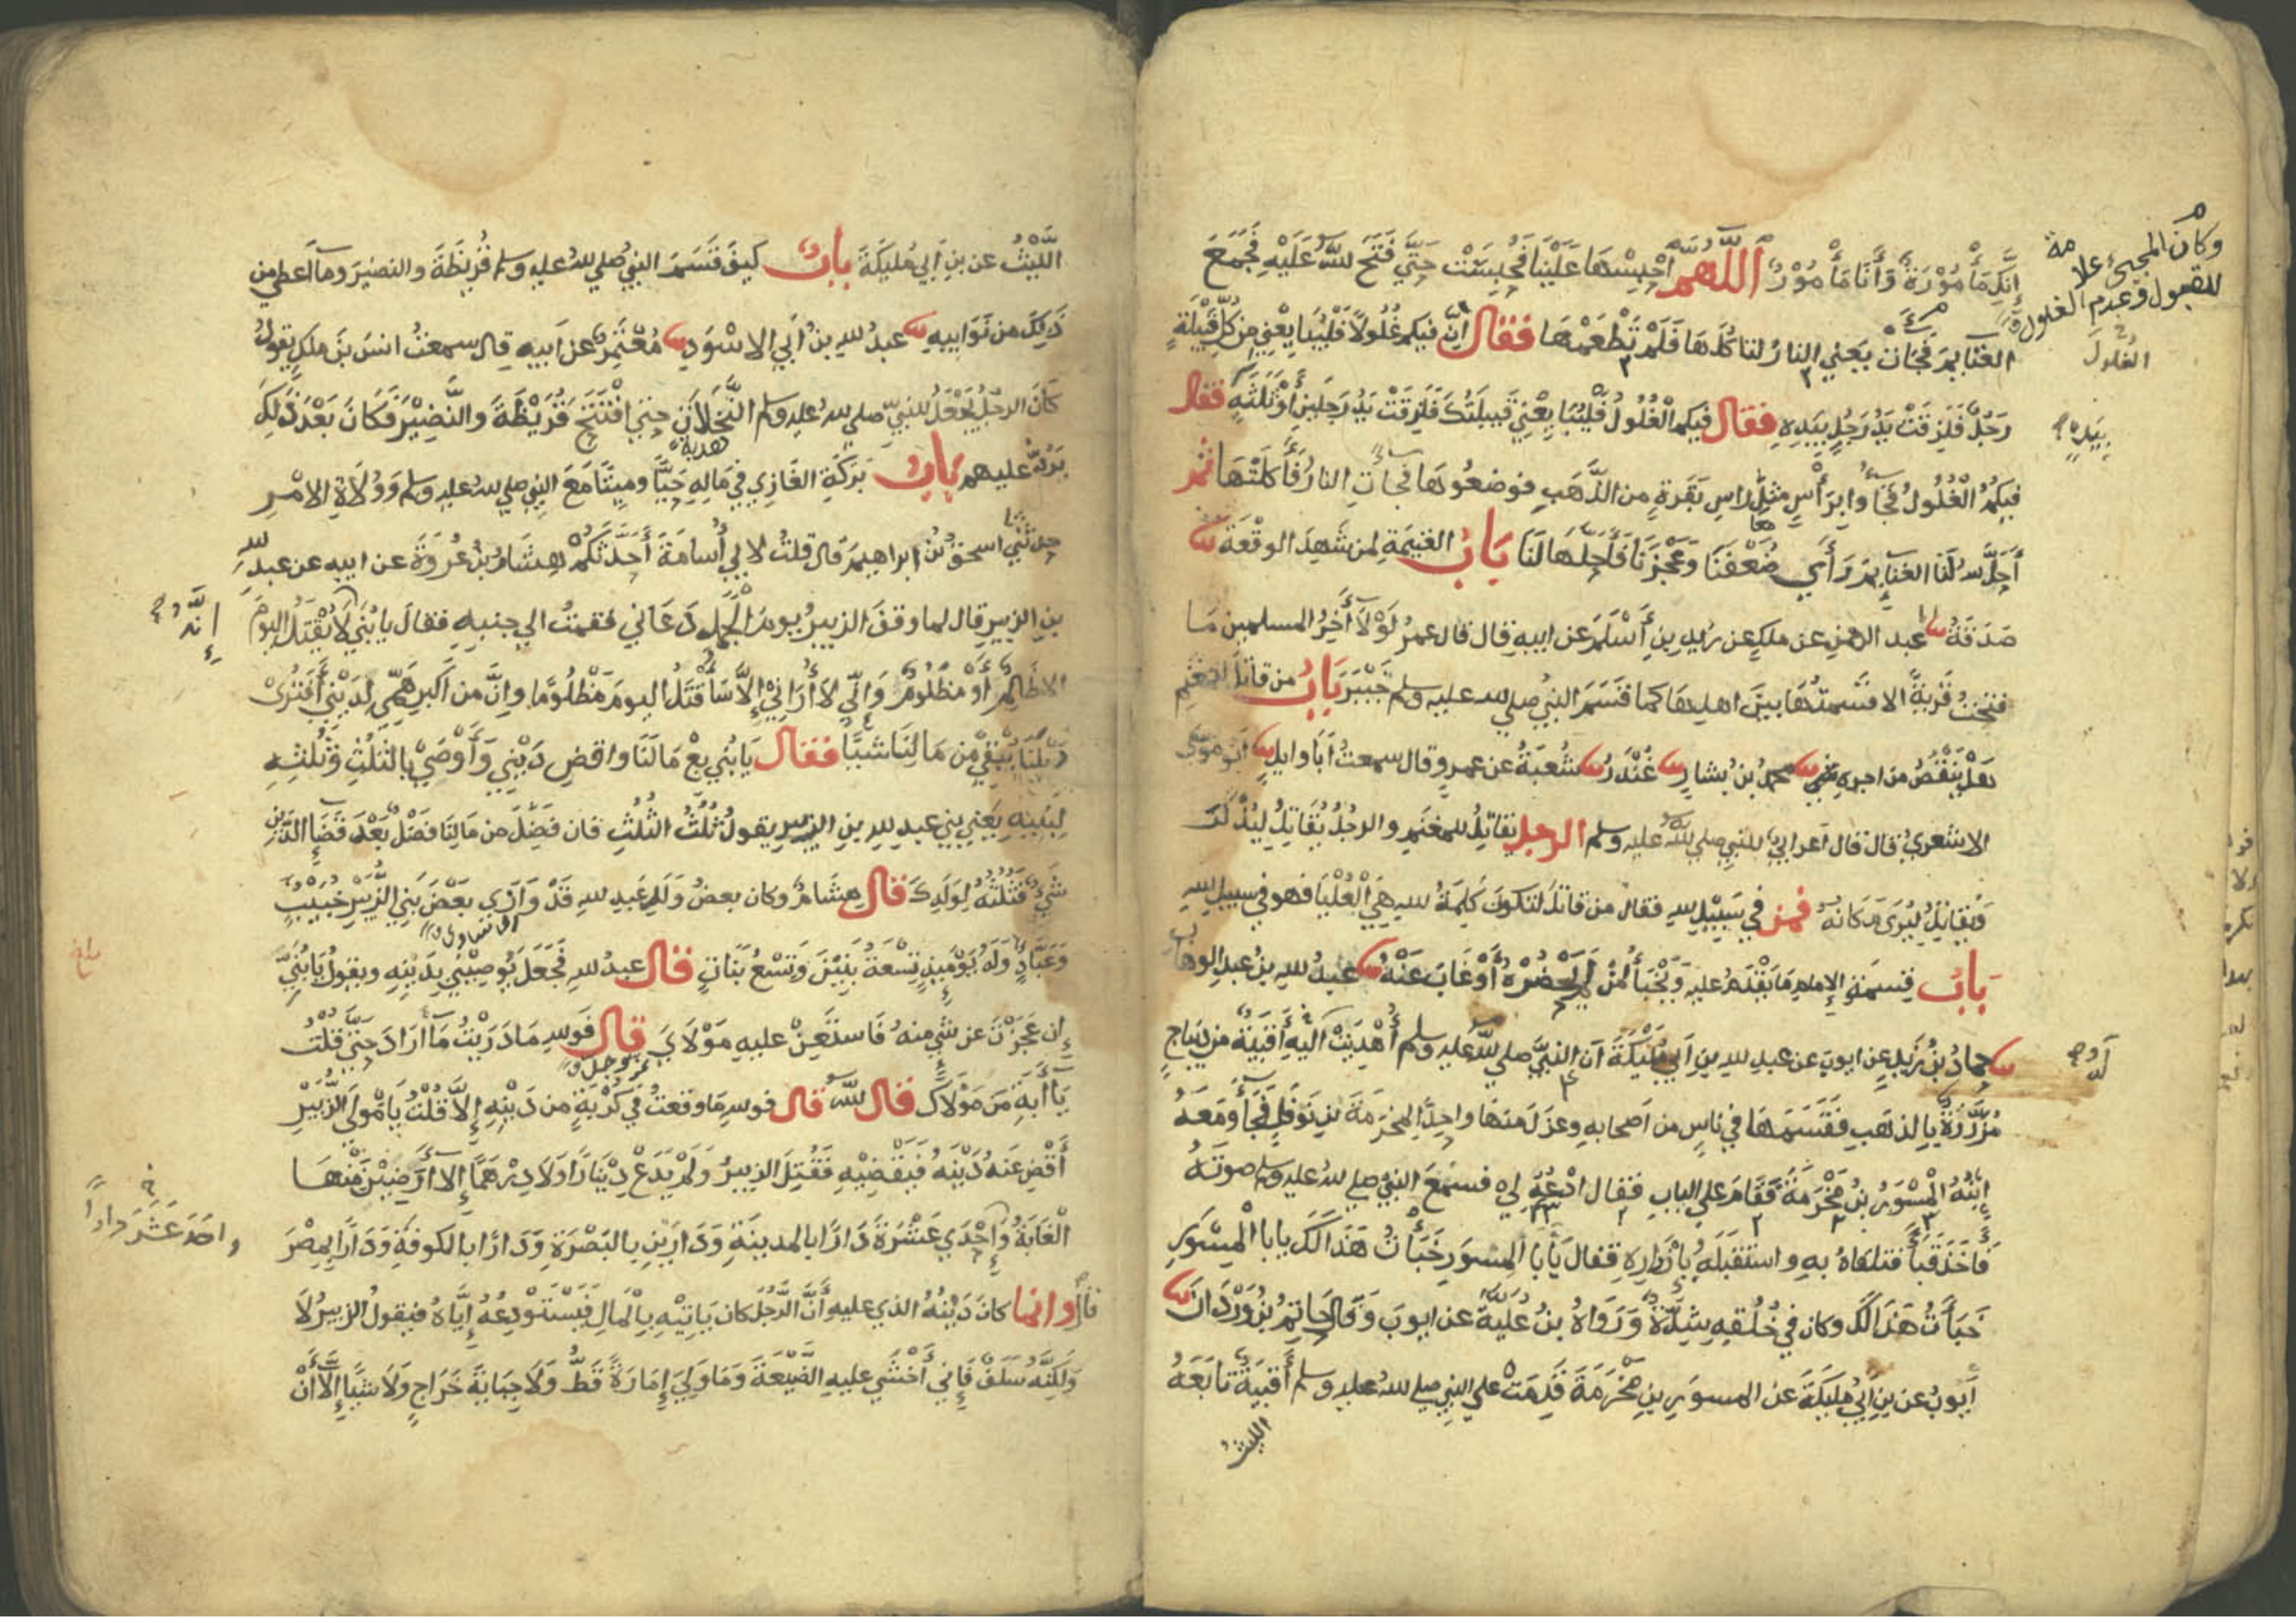 إِنَّكِ مَأْمُوْرَةٌ وَأَنَا مَأْمُوْرٌ اَللّٰهُمَّ احْبِسْهَا عَلَيْنَا فَحُبِسَتْ حَتَّي فَتَحَ اللّٰهُ عَلَيْهِ فَجَمَعَ
الغَنَايِمَ فَجَاءَتْ يَعْني النارُ لتاكُلَهَا فَلَمْ تَطْعَمْهَا فقال اِنَّ فيكم غُلُولاً فَلْيُبَايِعْنِي مِن كُلِّ قَبِيْلَةٍ
رَجُلٌ فَلَزِقَتْ يَدُ رَجُلٍ بِيَدِهِ فقال فيكم الْغُلُولُ فَلْيُبَايِعْنِي قَبيلَتُكَ فَلَزِقَتْ يَدُ رَجلَينِ أَوْ ثَلَثَةٍ فقال
فيكُمُ الْغُلُولُ فَجَاؤا بِرَأْسٍ مثلِ رَاسِ بَقَرَةٍ مِن الذَّهَبِ فوضعُوهَا فجاتِ النارُ فَأَكَلَتْهَا ثم
أَحَلَّ اللهُ لَنَا الغنايِمَ رَأَي ضُعْفَنَا وَعَجْزَنَا فَأَحَلَّهَا لَنَا بَابُ الغَنِيْمَةِ لِمن شَهِدَ الوَقْعَةَ
صَدَقَةُ عبد الرحمنِ عن ملكٍ عن زيدِ بنِ أَسْلَمَ عن ابيهِ قال قال عمرُ لَوْلاَ أَخِرُ المسلمين مَا
فتحتُ قَرْيَةً الا قسمتُهَا بينَ اهلِهَا كما قَسَمَ النبيُ صلي الله عليه وسلم خَيْبَرَ بَابُ من قاتل للمغنَمِ
هَلْ يَنْقُصُ من اجرِهِ محمدُ بنُ بشارٍ غُنْدَرٌ شُعبَةُ عن عمرٍو قال سمعتُ أَبَا وايلٍ أَبو مُوسَي
الاشعريُ قال قال أعرابيٌ للنبي صلي الله عليه وسلم الرجل يقاتِلُ للمغنَمِ والرجلُ يُقَاتِلُ لِيُذْكَرَ
وَيُقَاتِلُ لِيُرَي مَكَانُهُ فمن في سَبِيْلِ اللهِ فقال من قاتَلَ لتكونَ كَلِمَةُ اللهِ هِيَ الْعُلْيَا فهو في سبيلِ اللهِ
بَابُ قِسمَةِ الإمامِ مَا يَقْدَمُ عليهِ وَيَخْبَأُ لِمَنْ لَمْ يَحْضُرْهُ أَوْ غَابَ عَنْهُ عبدُ اللهِ بنُ عبدِ الوهابِ
حمادُ بنُ زَيدٍ عن ايوبَ عن عبدِ اللهِ بنِ اَبي مُلَيْكَةَ اَنَ النبيَّ صلي الله عليه وسلم أُهْدِيَتْ اليهِ أَقبِيَةٌ من ديباجٍ
مُزَرَّرَةٌ بالذهَبِ فَقَسَمَهَا في ناسٍ من أصحابِهِ وعزَلَ منهَا واحِدًا لِمَخرَمَةَ بنِ نَوفَلٍ فَجَأَ وَمَعَهُ
ابْنُهُ الْمِسْوَرُ بنُ مَخْرَمَةَ فَقَامَ علي البابِ فقال ادْعُهُ لي فسمعَ النبيُ صلي الله عليه وسلم صوتَهُ
فأَخَذَ قَبَأً فتلقاهُ بهِ واستَقبَلَهُ بِأَزْرارِهِ فقالَ يَأَبَا المِسوَرِ خَبَأْتُ هَذَا لَكَ يابا الْمِسْوَرِ
خَبَأْتُ هَذَا لَكَ وكان في خُلُقِهِ شِدَّةٌ وَرَوَاهُ بنُ عُلَيَّةَ عن ايوبَ وَقال حَاتِمُ بنُ وَرْدَانَ
أَيوبُ عن بنِ اَبي مُلَيكَةَ عن المسوَرِ بنِ مَخْرَمَةَ قَدِمَتْ علي النبي صلي الله عليه وسلم أَقْبِيَةٌ تَابَعَهُ
الليثُ
وكان المجيء علامة
للقبول وعدم الغلول
الغُلولَ
بِيَدِهِ
اللَّيْثُ عن بنِ أَبي مُلَيكَةَ بابُ كيفَ قَسَمَ النبيُ صلي الله عليه وسلم قُرَيْظَةَ والنضِيْرَ وما أَعطي من
ذَلِكَ من نَوَايِبِهِ عبدُ اللهِ بنُ أَبي الاسْوَدِ مُعْتَمِرٌ عن أَبيهِ قال سمعتُ انسَ بنَ ملكٍ يقولُ
كَانَ الرجلُ يَجْعَلُ للنبيِّ صلي الله عليه وسلم النَّخَلاَتِ حتي افْتَتَحَ قُرَيْظَةَ والنَّضِيْرَ فَكَانَ بَعْدَ ذَلِكَ
يَرُدُّ عليهم بابُ بَرَكَةِ الغَازِي في مَالِهِ حَيًّا وميتًا مَعَ النبي صلي الله عليه وسلم وَوُلاَةِ الامْرِ
حدثني اسحقُ بنُ ابراهيمَ قال قلتُ لابي أُسامَةَ أَحَدَّثَكُمْ هِشَامُ بنُ عُروَةَ عن ابيهِ عن عبدِ اللهِ
بنِ الزبيرِ قال لما وقفَ الزبيرُ يومَ الْجَمَلِ دَعَاني فقمتُ الي جنبِهِ فقالَ يا بُنَيِّ لاَ يُقْتَلُ اليومَ
الا ظَالِمٌ اَوْ مَظْلُومٌ وَإِنّي لاَ أُرَانِيْ إِلاَّ سَأُقْتَلُ اليومَ مَظْلُومًا وإِنَّ من أَكبرِ هَمِّي لِدَيْنِي أَفَتُرَيْ
دَيْنَنَا يُبْقِيْ مِن مَالِنَا شَيئًا فقال يَا بُنَي بِعْ مَالَنَا واقضِ دَيْنِي وَأَوْصَيْ بالثُلُثِ وَثُلُثِهِ
لِبَنِيْهِ يَعْنِي بَنِي عبدِ اللهِ بنِ الزبيرِ يقولُ ثُلُثُ الثُلُثِ فان فَضَلَ من مَالِنَا فَضْلٌ بَعْدَ قَضَإِ الدَّيْنِ
شَيْءٌ فَثُلُثُهُ لِوَلَدِكَ قال هِشَامٌ وكان بعضُ وَلَدِ عَبدِ اللهِ قَدْ وَازَي بَعْضَ بَنِي الزُّبَيْرِ خُبَيْبٌ
وَعَبَّادٌ وَلَهُ يَوْمَيِذٍ تِسْعَةُ بَنِيْنَ وَتِسْعُ بَنَاتٍ قال عبدُ اللهِ فَجَعَلَ يُوصِيْنِي بِدَيْنِهِ ويقولُ يَا بُنَيِّ
إِن عَجَزْتَ عن شيءٍ منهُ فَاستَعِنْ عليهِ مَوْلاَيَ قال فَوَاللهِ مَا دَرَيْتُ مَا أَرَادَ حَتَّي قُلْتُ
يَا أَبَةِ مَن مَوْلاَكَ قال اللهُ قال فواللهِ مَا وقعتُ في كُرْبَةٍ من دَيْنِهِ إِلاَّ قُلْتُ يَا مَوْلَي الزُّبَيْرِ
أَقْضِ عَنهُ دَيْنَهُ فَيَقْضِيْهِ فَقُتِلَ الزبيرُ وَلَمْ يَدَعْ دِيْنَارًا وَلاَ دِرْهَمًا إِلا أَرَضِيْنَ مِنْهَا
الْغَابَةُ وَإِحْدَي عَشْرَةَ دَارًا بالمدينَةِ وَدَارَينِ بالبَصْرَةِ وَدَارًا بالكوفَةِ وَدَارًا بِمِصْرَ
قال وانما كانَ دَيْنُهُ الذي عليهِ أَنَّ الرَّجُلَ كان يَاتِيْهِ بِالْمَالِ فَيَسْتَوْدِعُهُ إِيَّاهُ فيقولُ الزبيرُ لاَ
وَلَكِنَّهُ سَلَفٌ فَإِني أَخْشَي عليهِ الضَّيْعَةَ وَمَا وَلِيَ إِمَارَةً قَطُّ وَلاَ جِبَايَةَ خَرَاجٍ وَلاَ شَيًا إِلاَّ أَنْ
إِنَّهُ
واحَدَ عَشَرَ دَاراً